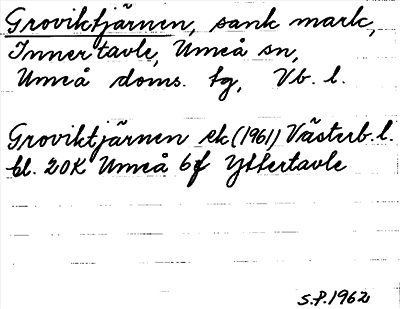 Groviktjärnen, sank mark,
Innertavle, Umeå sn,
Umeå doms. tg, Vb. l.
Groviktjärnen ek (1961) Västerb. l.
bl. 20K Umeå 6f Yttertavle
S.P. 1962